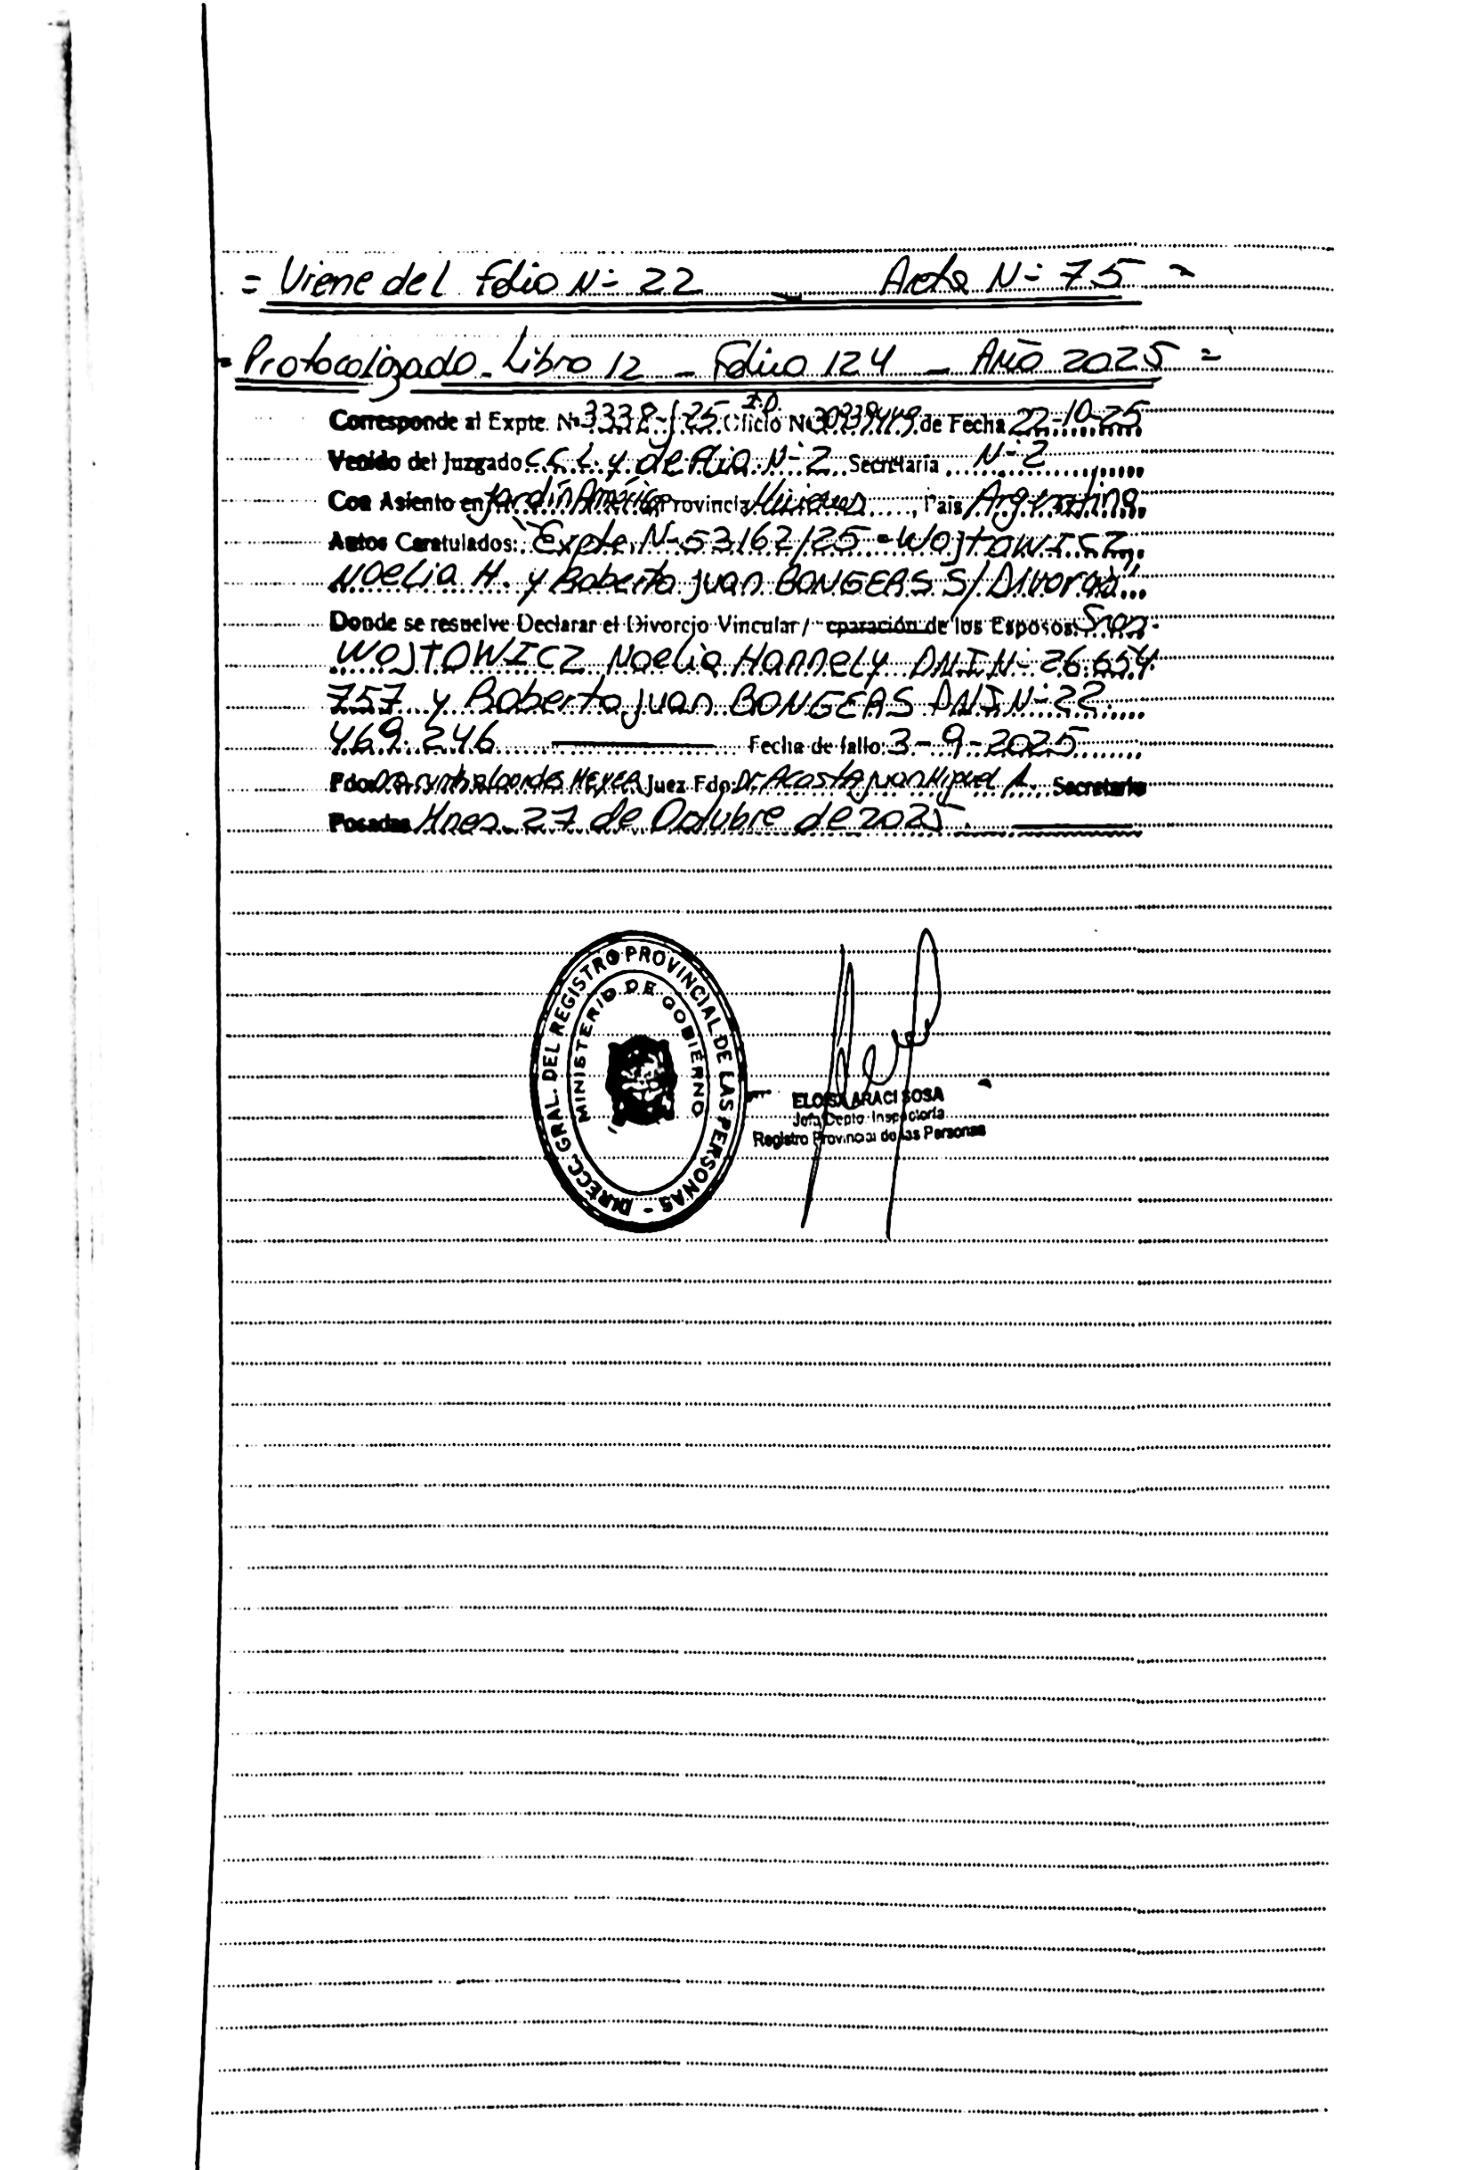 = Viene del folio N- 22 Acta N- 75 =
= Protocolizado - Libro 12 - Folio 124 - Año 2025 =
Corresponde al Expte. Nº 3338-J-25 I.D. Oficio Nº 30939449 de Fecha 22-10-25
Venido del Juzgado C.C.L. y de Flia N-2 Secretaría N-2
Con Asiento en Jardín América Provincia Misiones, País Argentina
Autos Caratulados: "Expte. N-53162/25 - WOJTOWICZ,
NOELIA H. y Roberto Juan BONGERS S/Divorcio"
Donde se resuelve Declarar el Divorcio Vincular / eparación de los Esposos: Sres.
WOJTOWICZ Noelia Hannely DNI N- 26.654.
757 y Roberto Juan BONGERS DNI N- 22.
469.246 Fecha de fallo: 3-9-2025
Fdo: Dra. Lourdes MEYER Juez Fdo: Dr Acosta Juan Miguel A. Secretario
Posadas Mnes. 27 de Octubre de 2025.
DIRECC. GRAL. DEL REGISTRO PROVINCIAL DE LAS PERSONAS -
MINISTERIO DE GOBIERNO
ELOISA ARACI SOSA
Jefa Depto. Inspectoría
Registro Provincial de las Personas